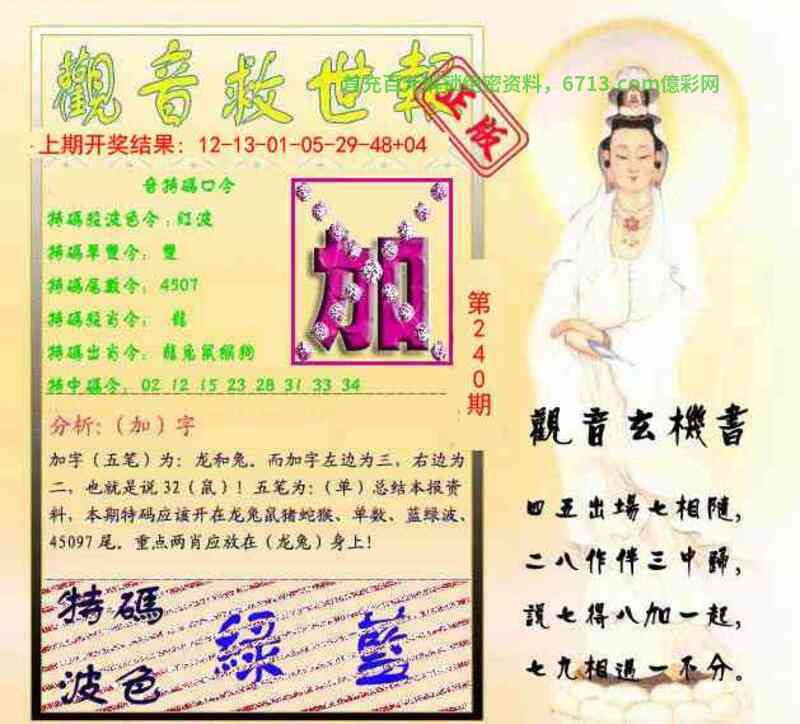 觀音救世報
首充百
密资料，6713.com億彩网
正版
上期开奖结果：12-13-01-05-29-48+04
音特碼口令
特碼段波色令：红波
特碼單雙令：雙
特碼尾數令：4507
特碼段肖令：龍
特碼出肖令：龍兔鼠猴狗
特中碼令：02 12 15 23 28 31 33 34
加
第240期
分析：（加）字
加字（五笔）为：龙和兔。而加字左边为三，右边为
二，也就是说32（鼠）！五笔为：（单）总结本报资
料，本期特码应该开在龙兔鼠猪蛇猴、单数、蓝绿波、
45097尾。重点两肖应放在（龙兔）身上！
特碼
波色
綠 藍
觀音玄機書
四五出場七相隨，
二八作伴三中歸，
説七得八加一起，
七九相遇一不分。